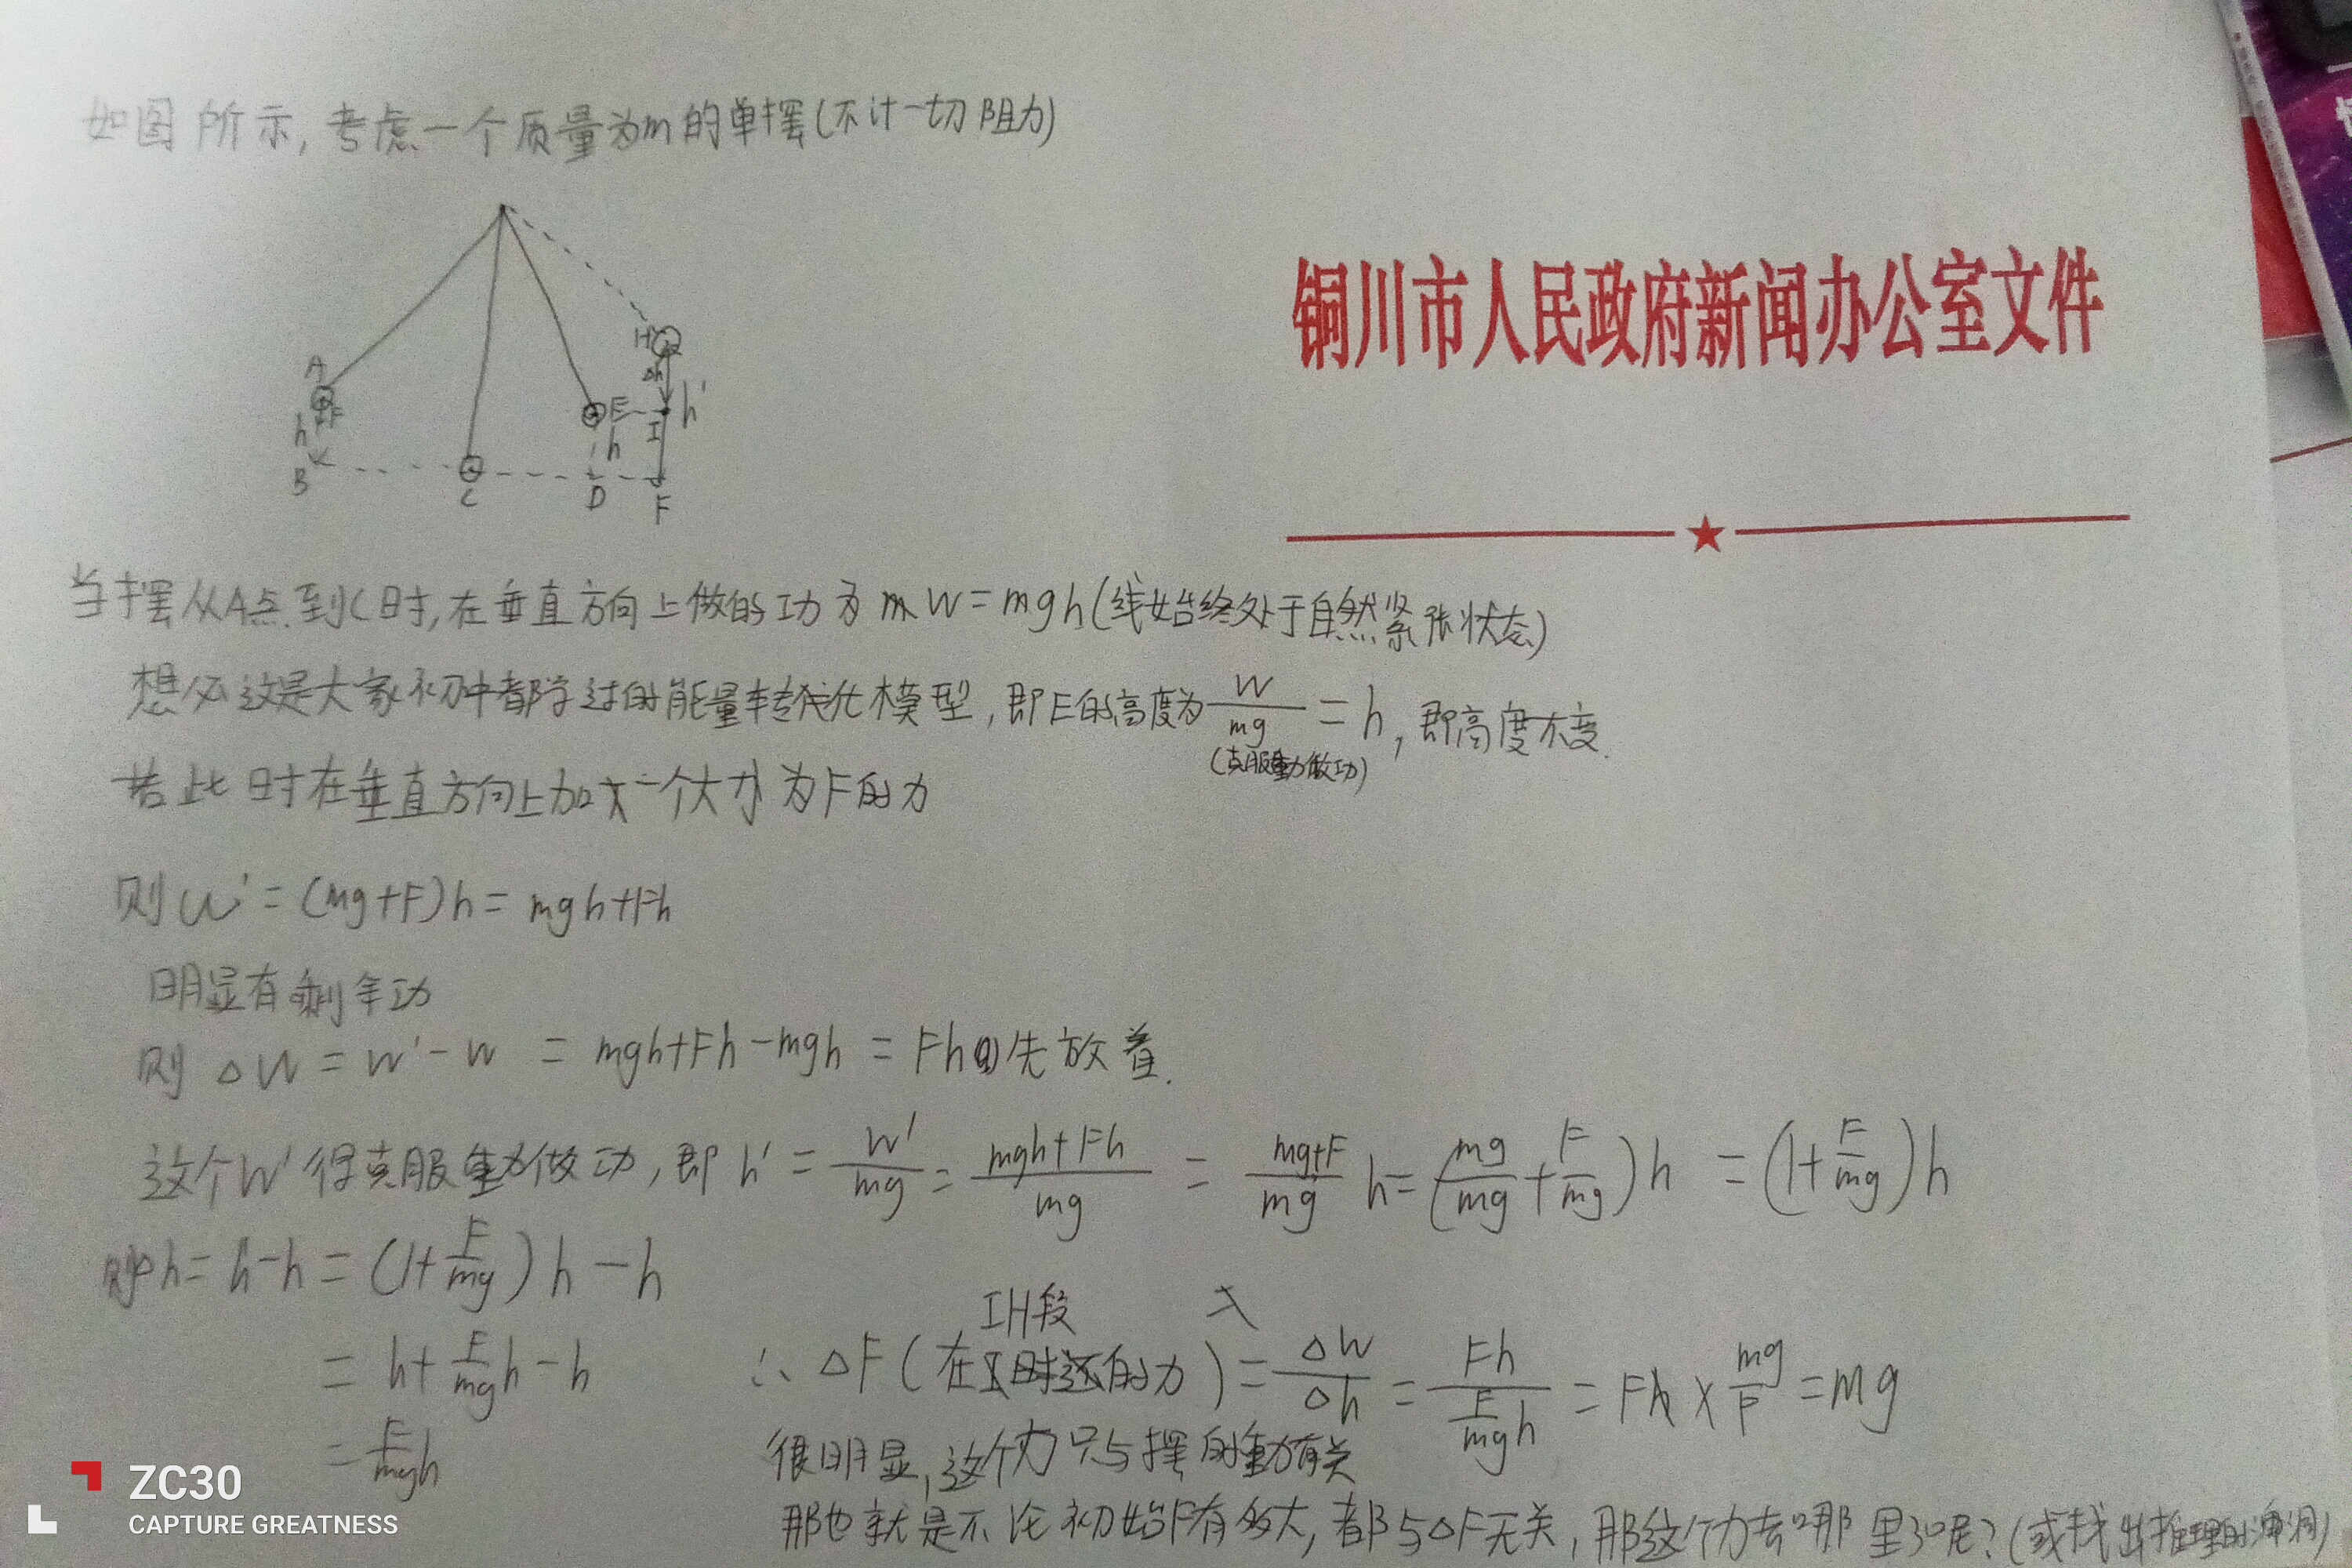 如图所示,考虑一个质量为m的单摆(不计一切阻力)
A
H
Δh
F
h
E
h'
I
h
B
C
D
F
铜川市人民政府新闻办公室文件
当摆从A点到C时,在垂直方向上做的功为 W=mgh(线始终处于自然紧张状态)
想必这是大家初中都学过的能量转化模型,即E的高度为 W/mg =h,即高度不变.
(克服重力做功)
若此时在垂直方向上加一个大小为F的力
则W'=(mg+F)h=mgh+Fh
明显有剩余功
则 ΔW=W'-W =mgh+Fh-mgh=Fh 先放着.
这个W'得克服重力做功,即 h'= W'/mg = (mgh+Fh)/mg = (mg+F)/mg h=(mg/mg+F/mg)h =(1+F/mg)h
则Δh=h-h=(1+F/mg)h-h
=h+F/mg h-h
=F/mg h
IH段
∴ΔF(在 的力)=ΔW/Δh=Fh/(F/mg h)=Fh×mg/F=mg
很明显,这个力只与摆的重力有关
那也就是不论初始F有多大,都与ΔF无关,那这个力去哪里了呢?(或找出推理的漏洞)
ZC30
CAPTURE GREATNESS